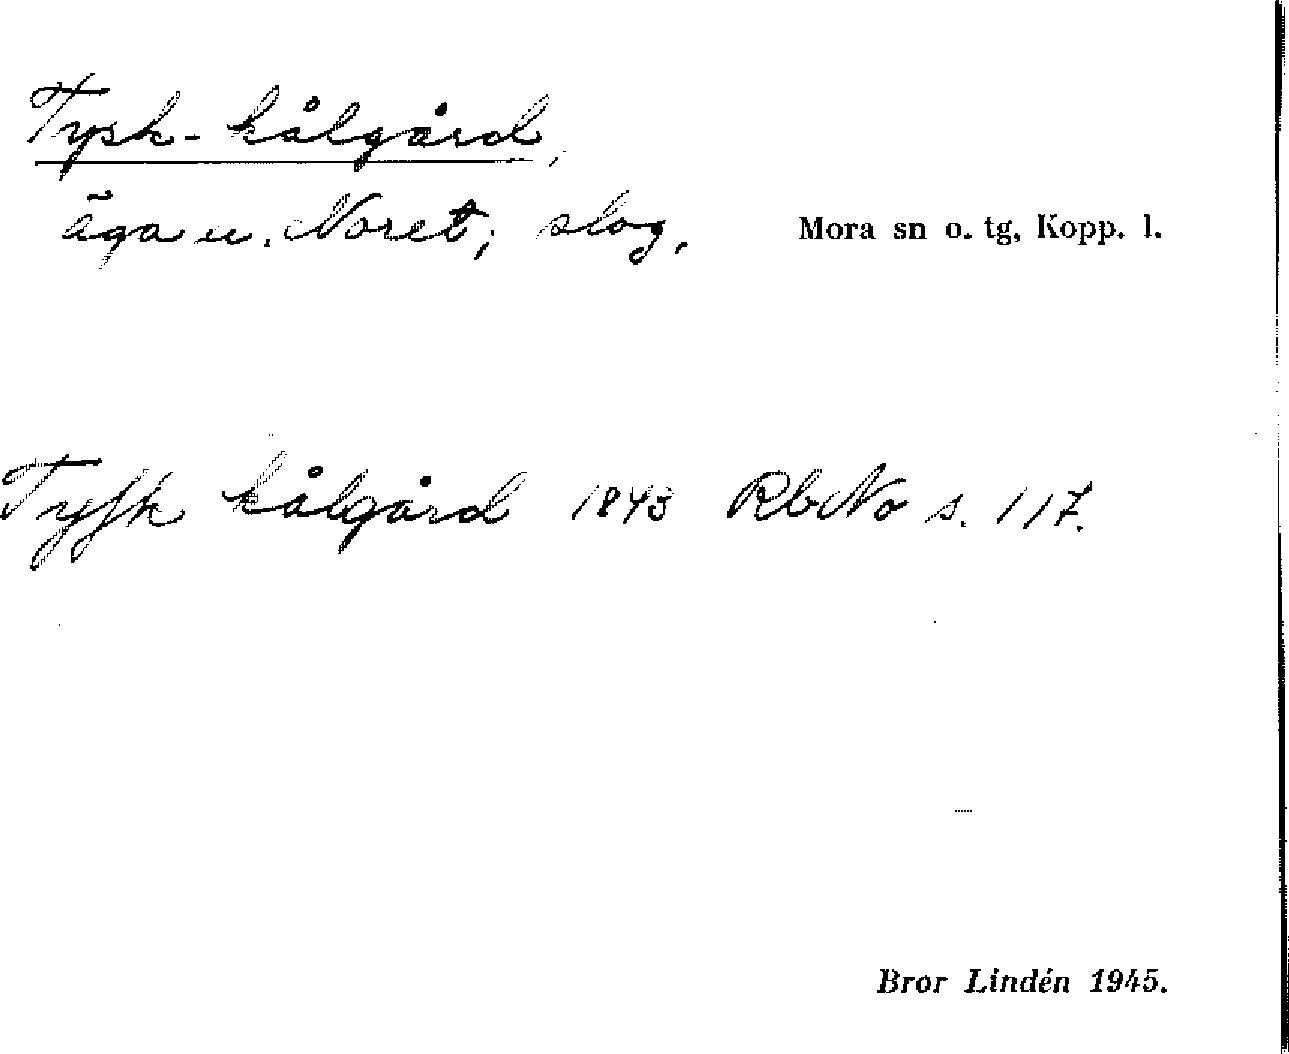 Tysk-kålgård,
äga u. Noret; slog,
Mora sn o. tg, Kopp. l.
Tyſk kålgård 1843 RbNo s. 117.
Bror Lindén 1945.